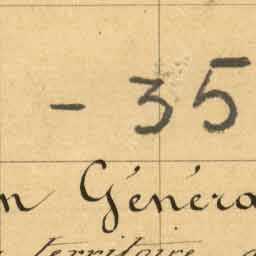 - 35
n Généra
territoire